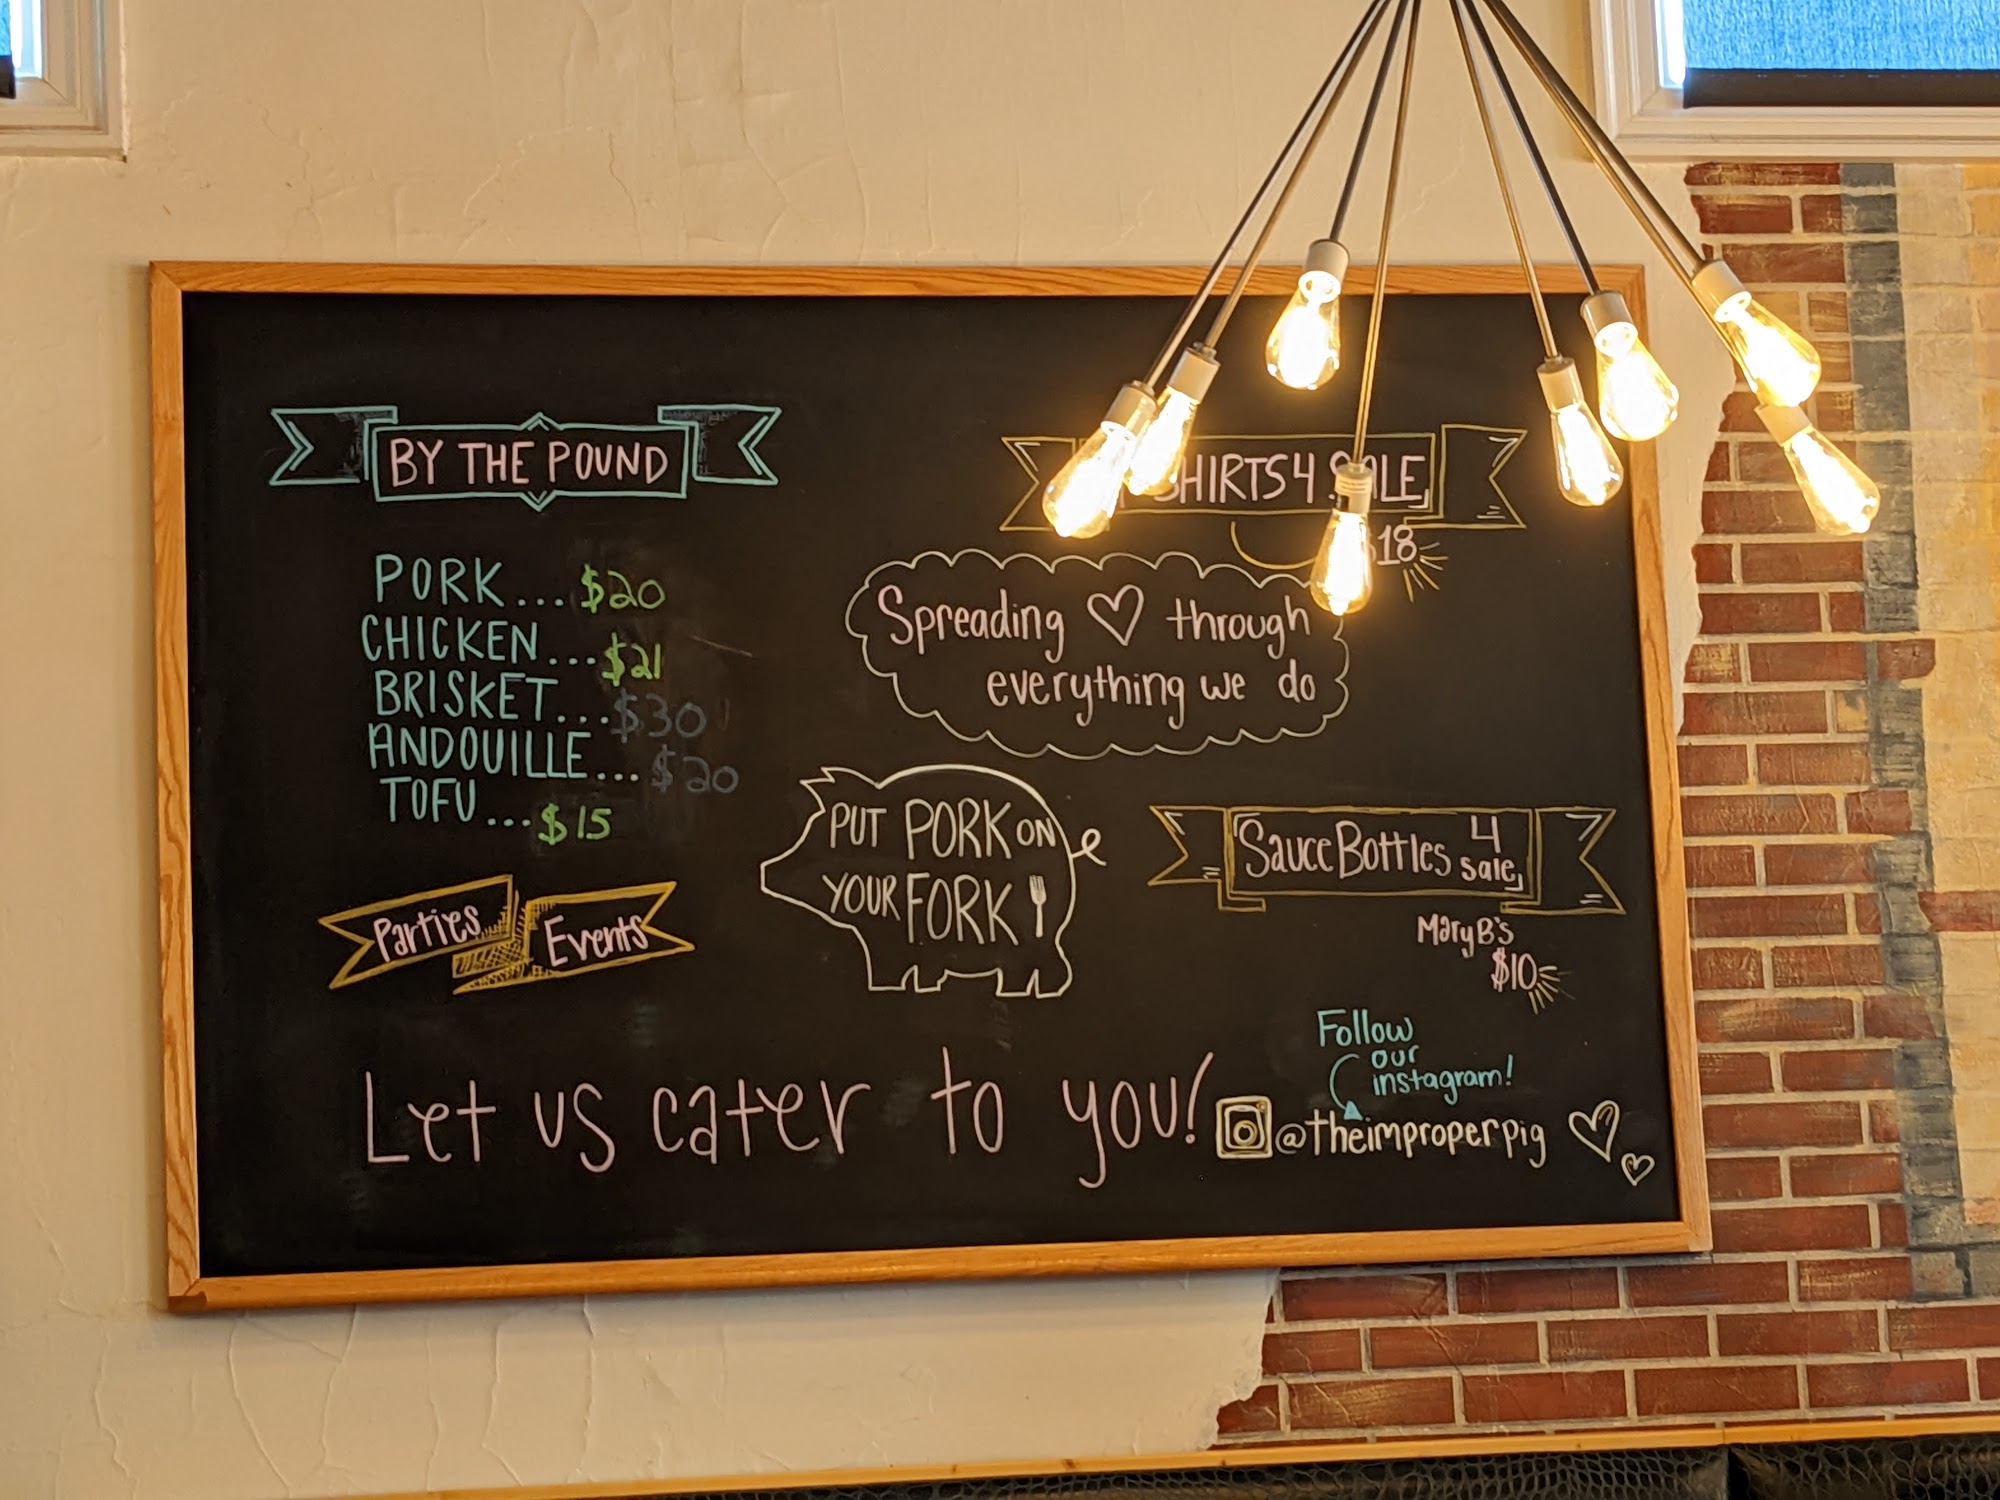 BY THE POUND
PORK... $20
CHICKEN... $21
BRISKET... $30
ANDOUILLE... $20
TOFU... $15
Parties Events
SHIRTS 4 SALE
18
Spreading ♡ through
everything we do
PUT PORK ON
YOUR FORK
Sauce Bottles 4
sale
Mary B's
$10
Let us cater to you!
Follow
our
instagram!
@theimproperpig